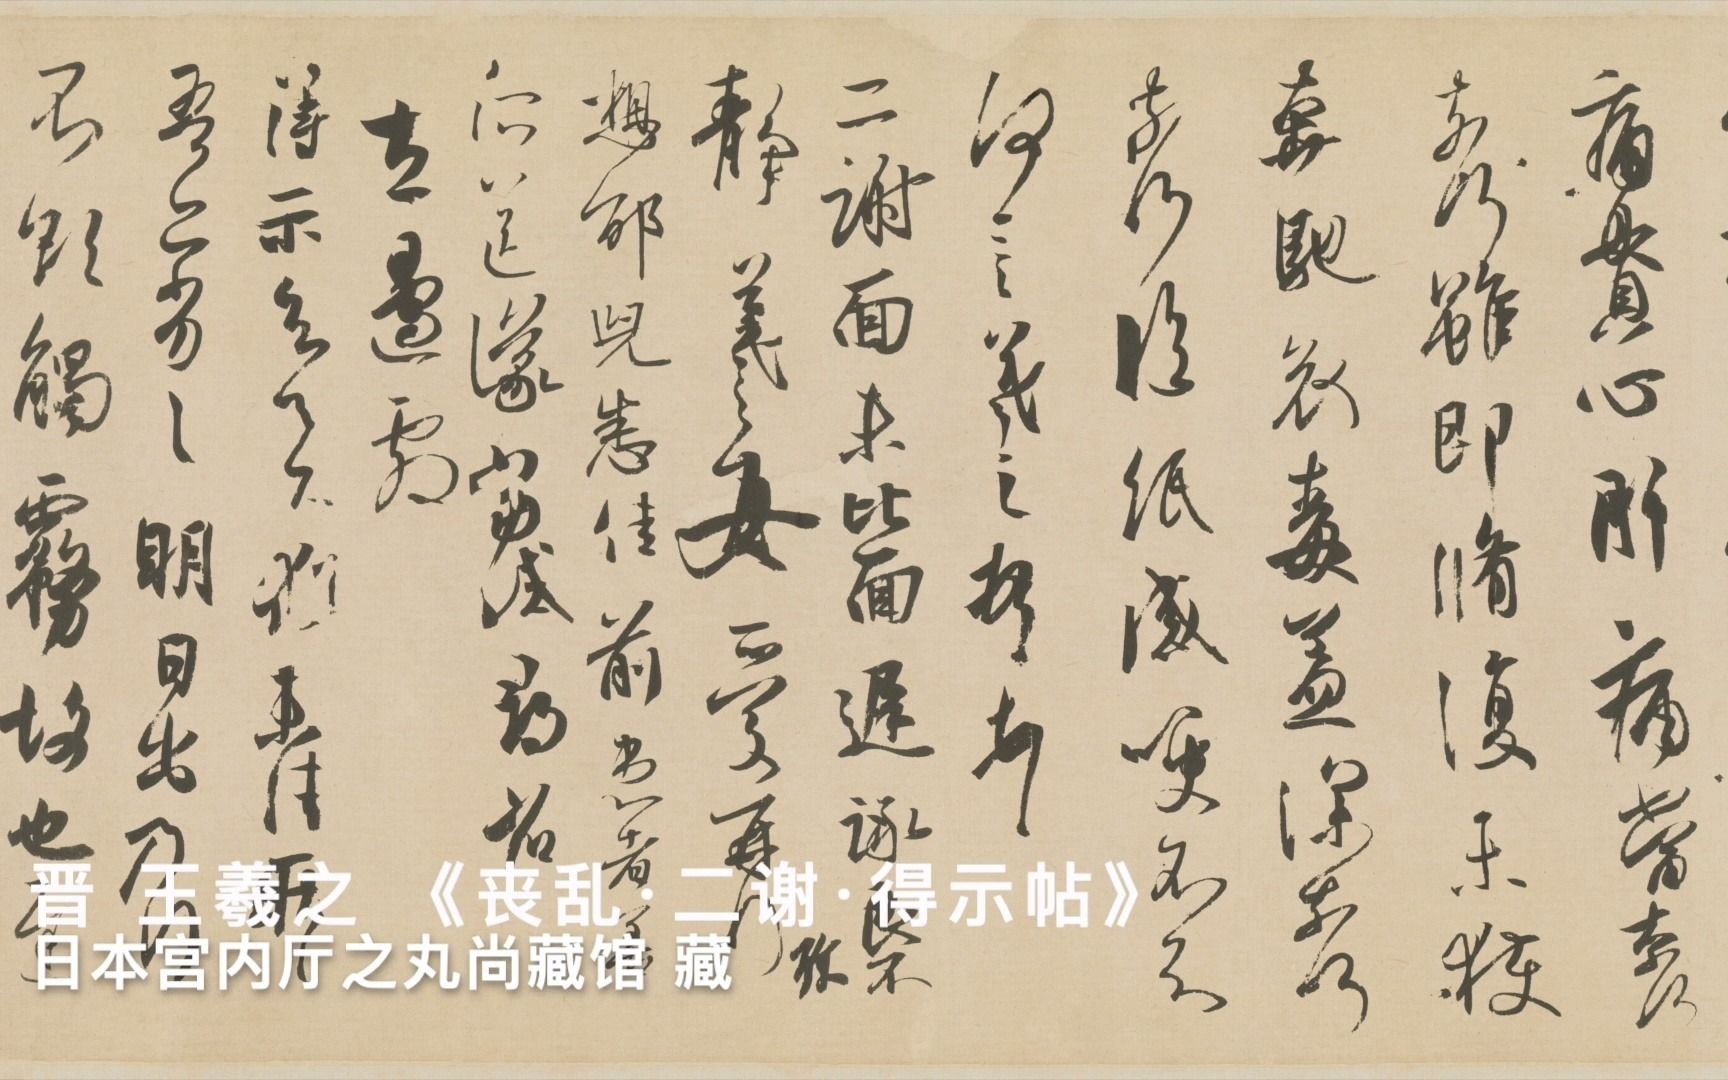 痛貫心肝痛當奈何
奈何雖即脩復未獲
奔馳哀毒益深奈何
奈何臨紙感哽不知
何言羲之頓首
二謝面未比面遲詠良不
靜羲之女愛再拜
想邰兒悉佳前患者善
所送議當試尋省
左邊劇
得示知足下猶未佳耿
吾亦劣劣明日出乃
不欲觸霧故也
晋 王羲之 《丧乱·二谢·得示帖》
日本宫内厅之丸尚藏馆 藏